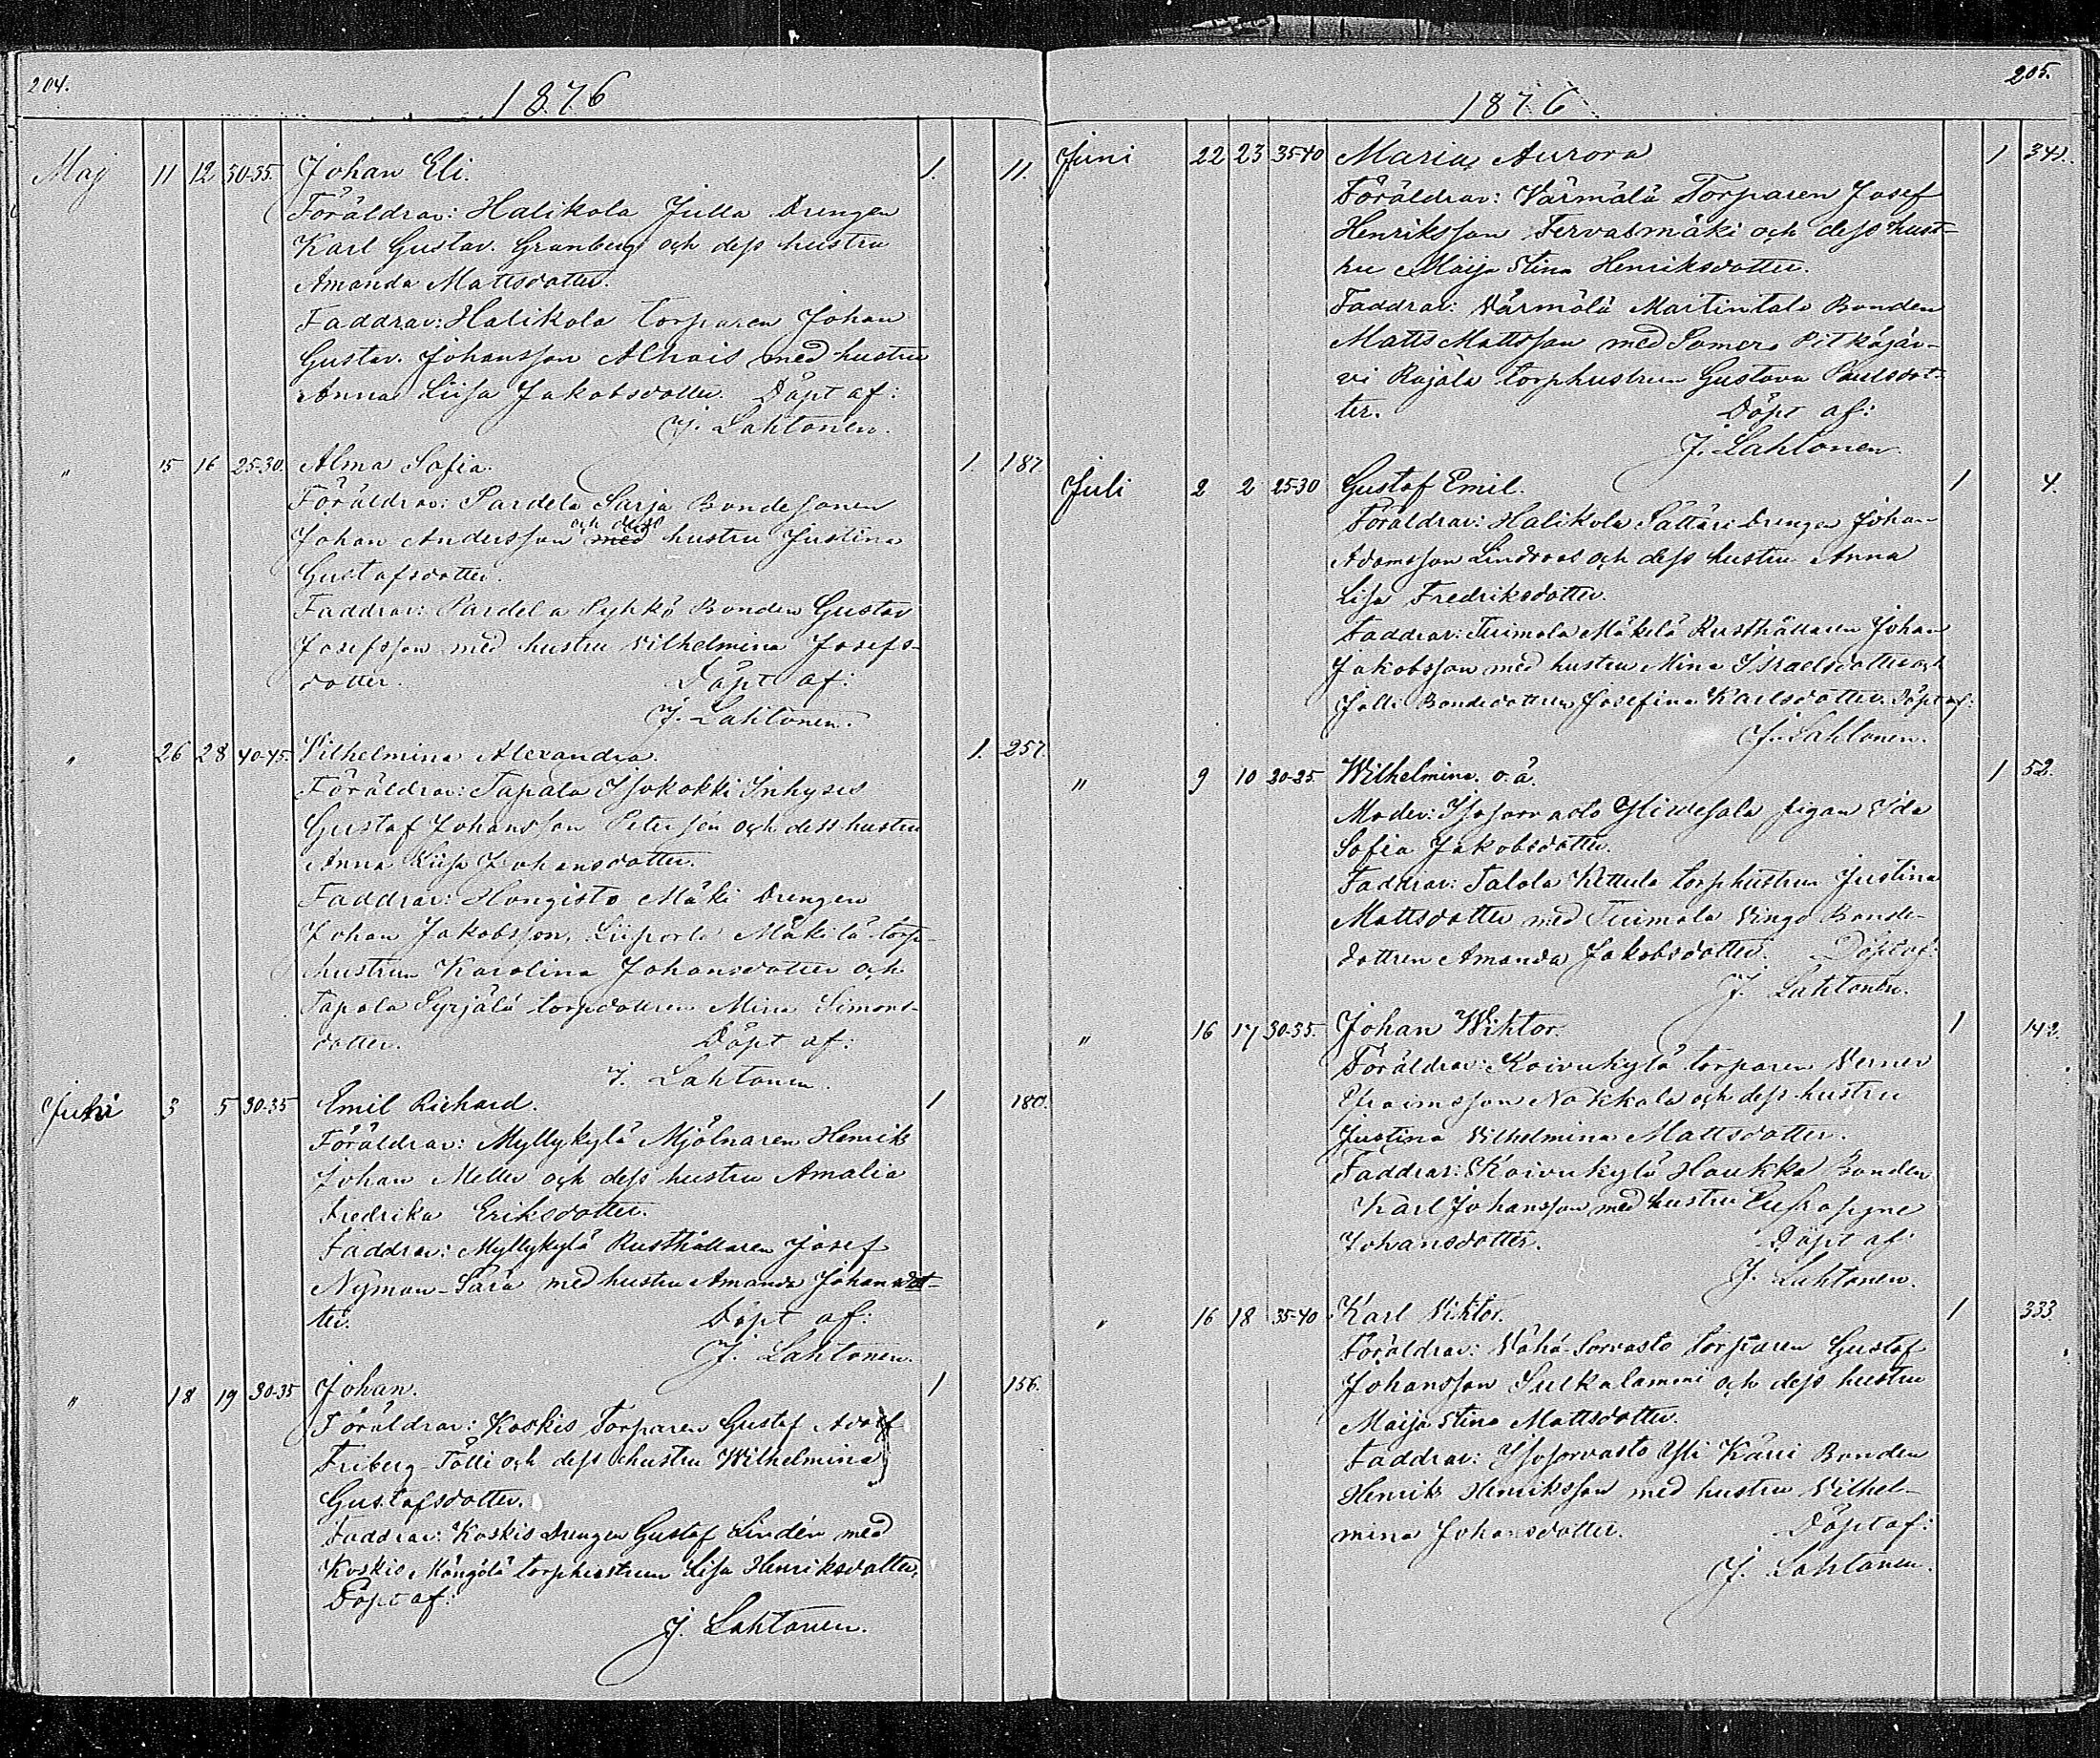 204.
1876
Maj 11 12 30-35. Johan Eli. 1. 11.
Föräldrar: Halikola Julla Drengen
Karl Gustav. Granberg och dess hustru
Amanda Mattsdotter.
Faddrar: Halikola torparen Johan
Gustav. Johansson Alhais med hustru
Anna Liisa Jakobsdotter. Döpt af:
J. Lahtonen.
" 15 16 25-30. Alma Sofia. 1. 187.
Föräldrar: Pardela Sarja Bondesonen
Johan Andersson och dess hustru Justina
Gustafsdotter.
Faddrar: Pardela Pyhkö Bonden Gustav
Josefsson med hustru Vilhelmina Josefs-
dotter. Döpt af:
J. Lahtonen.
" 26 28 40-45. Vilhelmina Alexandra. 1. 257.
Föräldrar: Tapala Isokokki Inhyses
Gustaf Johansson Petersén och dess hustru
Anna Liisa Johansdotter.
Faddrar: Hongisto Mäki Drengen
Johan Jakobsson, Liipola Mäkilä torp-
hustrun Karolina Johansdotter och
Tapala Syrjälä torpdottren Mina Simons-
dotter. Döpt af:
J. Lahtonen.
Juni 3 5 30-35 Emil Richard. 1 180.
Föräldrar: Myllykylä Mjölnaren Henrik
Johan Meller och dess hustru Amalia
Fredrika Eriksdotter.
Faddrar: Myllykylä Rusthållaren Josef
Nyman-Sara med hustru Amanda Johansdot-
ter. Döpt af:
J. Lahtonen.
" 18 19 30-35 Johan. 1 156.
Föräldrar: Koskis Torparen Gustaf Adolf
Friberg-Tölli och dess hustru Wilhelmina
Gustafsdotter.
Faddrar: Koskis Drengen Gustaf Lindén med
Koskis Mängölä torphustrun Lisa Henriksdotter.
Döpt af:
J. Lahtonen.
205.
1876
Juni 22 23 35-40 Maria Aurora 1 341.
Föräldrar: Värmälä Torparen Josef
Henriksson Tervasmäki och dess hust-
ru Maija Stina Henriksdotter.
Faddrar: Värmälä Martintalo Bonden
Matts Mattsson med Somero Pitkäjär-
vi Rajala torphustrun Gustava Paulsdot-
ter. Döpt af:
J. Lahtonen.
Juli 2 2 25-30 Gustaf Emil. 1 4.
Föräldrar: Halikola Sättäri Drengen Johan
Adamsson Lindroos och dess hustru Anna
Lisa Fredriksdotter.
Faddrar: Tuimala Mäkelä Rusthållaren Johan
Jakobsson med hustru Mina Israelsdotter och
Jalli Bondedottren Josefina Karlsdotter. Döpt af:
J. Lahtonen.
" 9 10 20-25 Wilhelmina. o.ä. 1 52.
Moder: Isosorvasto Yliwesala pigan Ida
Sofia Jakobsdotter.
Faddrar: Talola Kettula torphustrun Justina
Mattsdotter med Tuimala Vingo Bonde-
dottren Amanda Jakobsdotter. Döpt af:
J. Lahtonen.
" 16 17 30-35. Johan Wiktor. 1 142.
Föräldrar: Koivukylä torparen Verner
Efraimsson Nokkala och dess hustru
Justina Vilhelmina Mattsdotter.
Faddrar: Koivukylä Haukka Bonden
Karl Johansson med hustru Eufrosyne
Johansdotter. Döpt af
J. Lahtonen.
" 16 18 35-40 Karl Viktor. 1 333.
Föräldrar: Vähä-Sorvasto torparen Gustaf
Johansson Sulkalammi och dess hustru
Maija Stina Mattsdotter.
Faddrar: Isosorvasto Yli Kärri Bonden
Henrik Henriksson med hustru Vilhel-
mina Johansdotter. Döpt af:
J. Lahtonen.